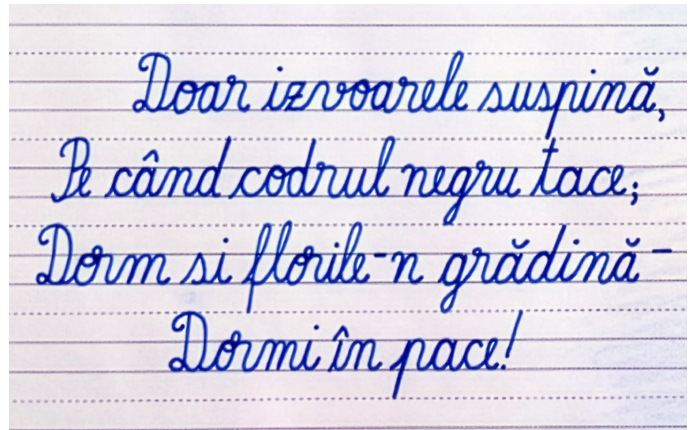 Doar izvoarele suspină,
Pe când codrul negru tace;
Dorm si florile-n grădină -
Dormi în pace!